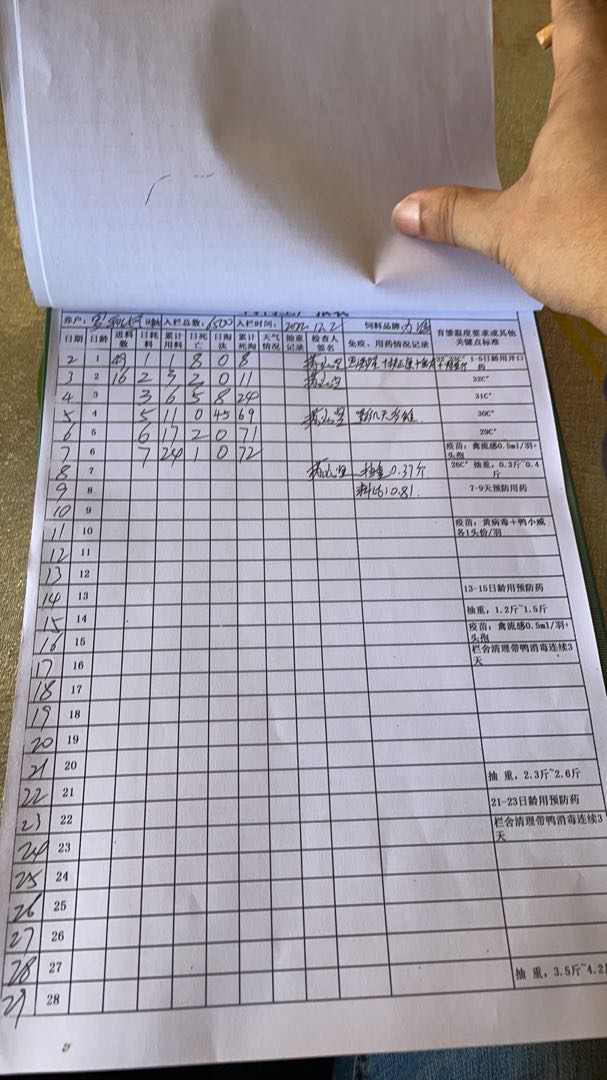 养户: 批 入栏总数: 6500 入栏时间: 12.2 饲料品牌
日期 日龄 进料数 日耗料 累计用料 日死亡 日淘汰 累计死淘 天气情况 抽重记录 检查人签名 免疫、用药情况记录 育雏温度要求或其他关键点标准
2 1 49 1 1 8 0 8 1-5日龄用开口药
3 2 16 2 3 2 0 11 32C°
4 3 3 6 5 8 24 31C°
5 4 5 11 0 45 69 30C°
6 5 6 17 2 0 71 29C°
7 6 7 24 1 0 72 疫苗: 禽流感0.5ml/羽+头孢
8 7 抽重0.37斤 26C° 抽重, 0.3斤~0.4斤
9 8 料比:0.81. 7-9天预防用药
10 9
11 10 疫苗: 黄病毒+鸭小威各1头份/羽
12 11
13 12
14 13 13-15日龄用预防药
15 14 抽重, 1.2斤~1.5斤
16 15 疫苗: 禽流感0.5ml/羽+头孢
17 16 栏舍清理带鸭消毒连续3天
18 17
19 18
20 19
21 20
22 21 抽 重, 2.3斤~2.6斤
23 22 21-23日龄用预防药
24 23 栏舍清理带鸭消毒连续3天
25 24
26 25
27 26
28 27
29 28 抽 重, 3.5斤~4.2